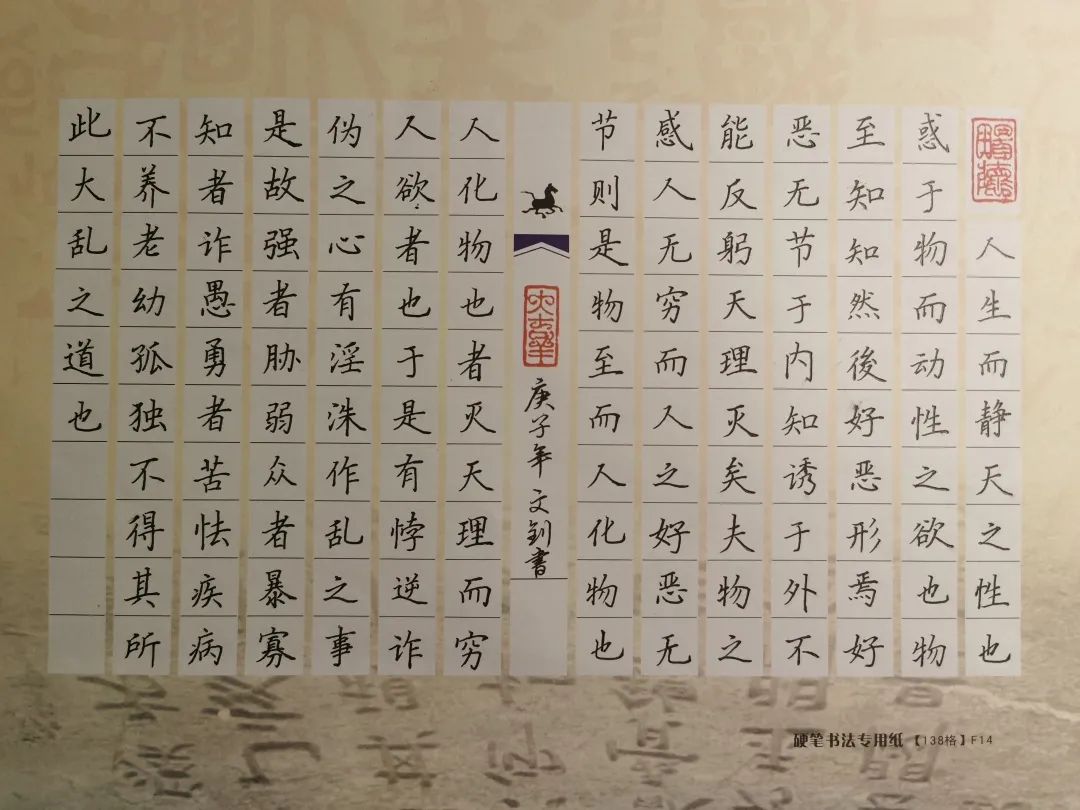 人生而静天之性也
惑于物而动性之欲也物
至知知然後好恶形焉好
恶无节于内知诱于外不
能反躬天理灭矣夫物之
感人无穷而人之好恶无
节则是物至而人化物也
庚子年文钊書
人化物也者灭天理而穷
人欲者也于是有悖逆诈
伪之心有淫泆作乱之事
是故强者胁弱众者暴寡
知者诈愚勇者苦怯疾病
不养老幼孤独不得其所
此大乱之道也
硬笔书法专用纸【138格】F14